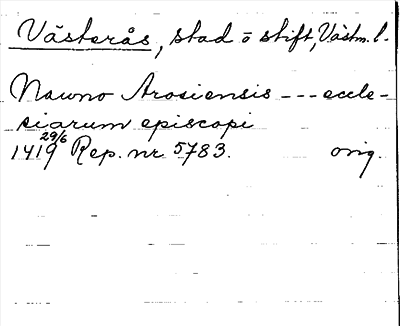 Västerås, stad o stift, Västm. l.
Nawno Arosiensis --- eccle-
siarum episcopi
1419 29/6 Rep. nr 5783. orig.